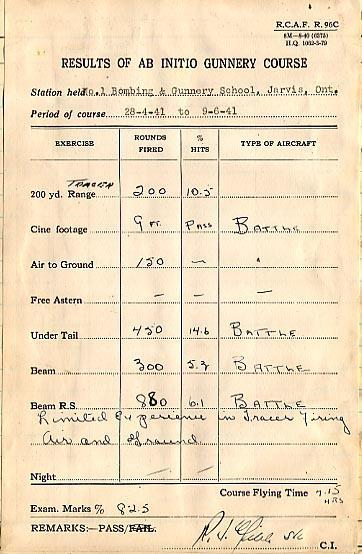 R.C.A.F. R. 96C
5M—8-40 (6375)
H.Q. 1062-3-79
RESULTS OF AB INITIO GUNNERY COURSE
Station held No.1 Bombing & Gunnery School, Jarvis, Ont.
Period of course 28-4-41 to 9-6-41
EXERCISE ROUNDS FIRED % HITS TYPE OF AIRCRAFT
TRACER
200 yd. Range 200 10.5
Cine footage 9 FT. PASS BATTLE
Air to Ground 150 — "
Free Astern — — —
Under Tail 450 14.6 BATTLE
Beam 300 5.3 BATTLE
Beam R.S. 880 6.1 BATTLE
Limited Experience in Tracer Firing
Air and Ground
Night
Course Flying Time 7.15 HRS
Exam. Marks % 82.5
REMARKS:—PASS/FAIL.
C.I.